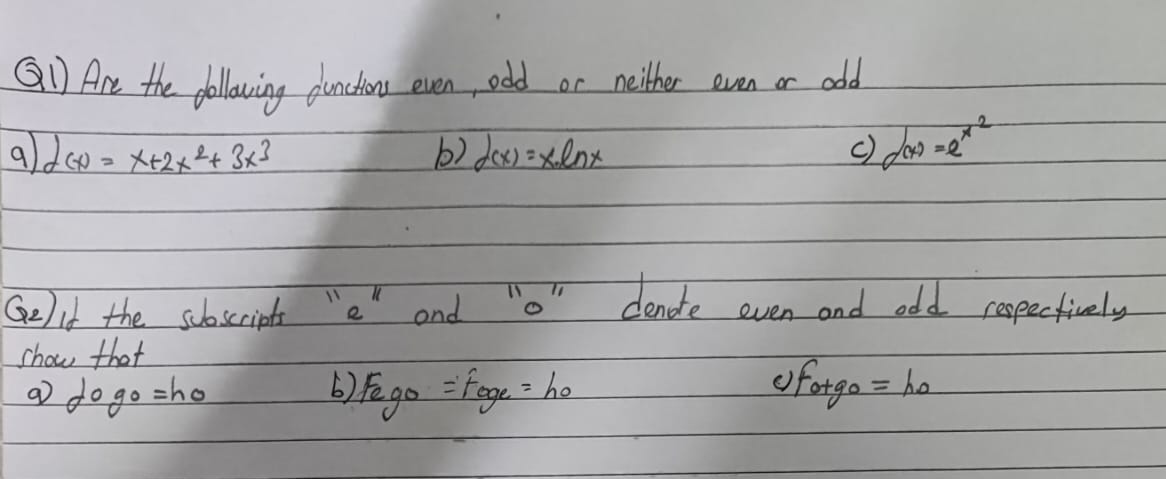 Q1) Are the following functions even, odd or neither even or odd
a) f(x) = x+2x²+3x³ b) f(x) = x.lnx c) f(x) = e^x²
Q2) if the subscripts "e" and "o" denote even and odd respectively
show that
a) fogo = ho b) Fego = Foge = ho c) Fo+go = ho